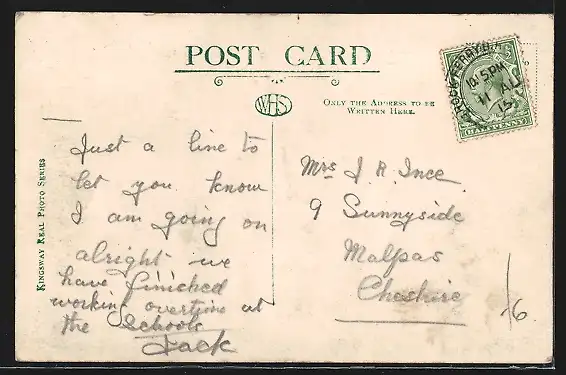 POST CARD
WHS
ONLY THE ADDRESS TO BE
WRITTEN HERE.
KINGSWAY REAL PHOTO SERIES
ROCK FERRY
5 PM
11 AU
15
HALFPENNY
Just a line to
let you know
I am going on
alright we
have finished
working overtime at
the Schools
Jack
Mrs J. R. Ince
9 Sunnyside
Malpas
Cheshire
/6